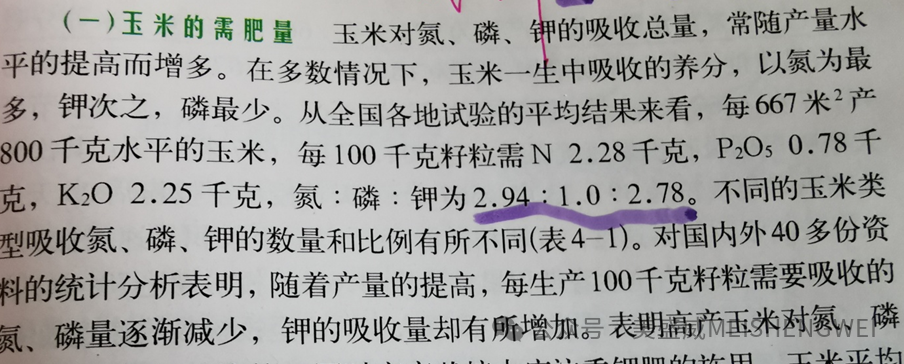 (一)玉米的需肥量 玉米对氮、磷、钾的吸收总量，常随产量水
平的提高而增多。在多数情况下，玉米一生中吸收的养分，以氮为最
多，钾次之，磷最少。从全国各地试验的平均结果来看，每667米²产
800千克水平的玉米，每100千克籽粒需N 2.28千克，P₂O₅ 0.78千
克，K₂O 2.25千克，氮：磷：钾为2.94：1.0：2.78。不同的玉米类
型吸收氮、磷、钾的数量和比例有所不同(表4-1)。对国内外40多份资
料的统计分析表明，随着产量的提高，每生产100千克籽粒需要吸收的
氮、磷量逐渐减少，钾的吸收量却有所增加。表明高产玉米对氮、磷
MEISHENGWEI
玉米平均